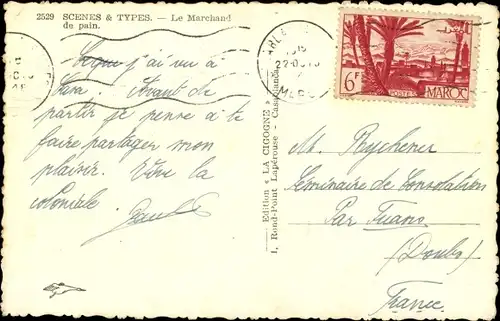 2529 SCENES & TYPES. — Le Marchand
de pain.
j'ai vu à
Avant de
partir je pense à te
faire partager mon
plaisir. Vive la
coloniale.
Edition « LA CIGOGNE »
1, Rond-Point Lapérouse - Casablanca
22-10
6F
POSTES
MAROC
M.
Séminaire de Consolation
Par
(Doubs)
France